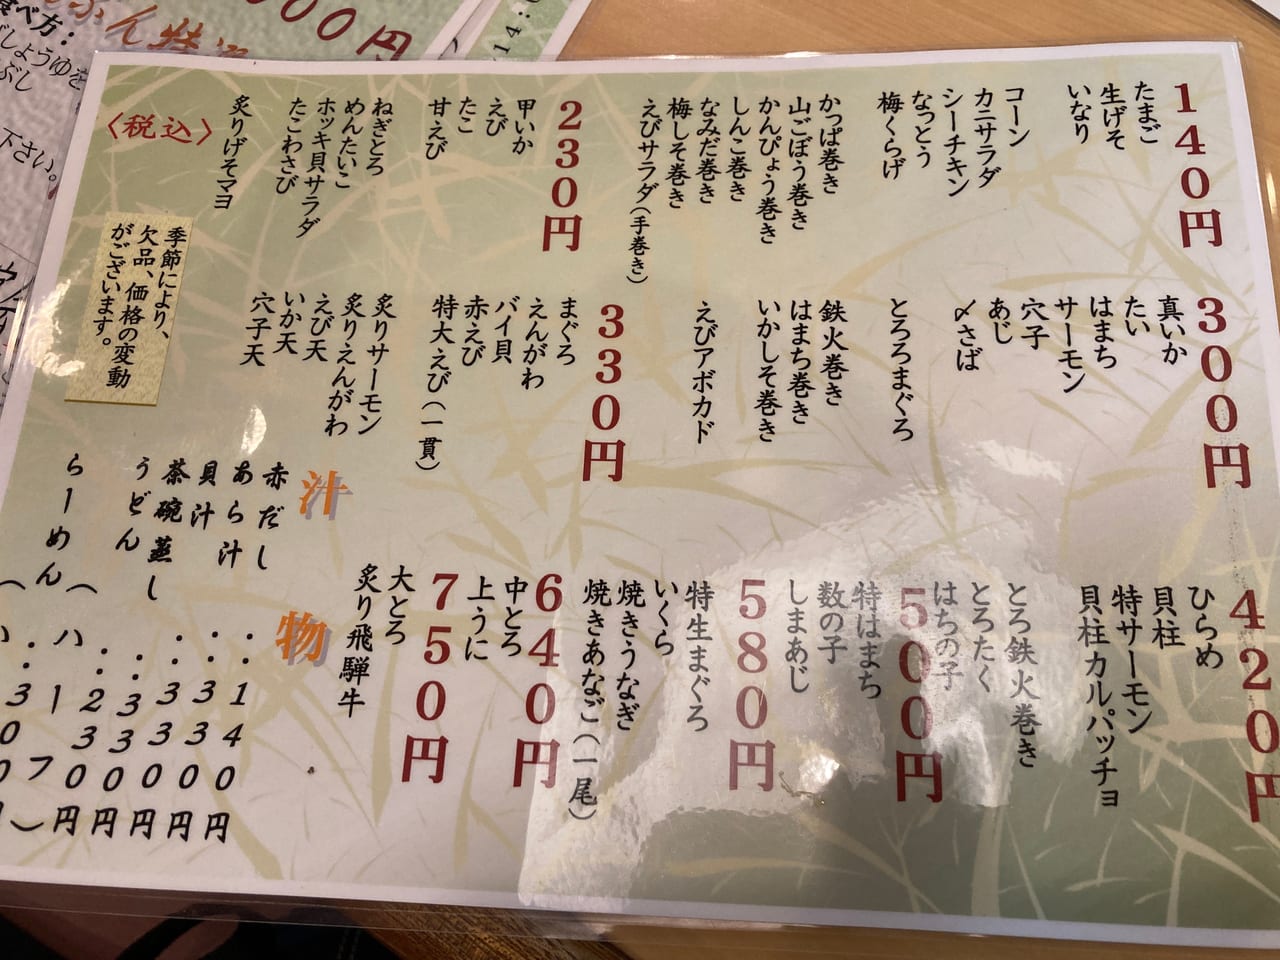 140円
たまご
生げそ
いなり
コーン
カニサラダ
シーチキン
なっとう
梅くらげ
かっぱ巻き
山ごぼう巻き
かんぴょう巻き
しんこ巻き
なみだ巻き
梅しそ巻き
えびサラダ(手巻き)
230円
甲いか
えび
たこ
甘えび
ねぎとろ
めんたいこ
ホッキ貝サラダ
たこわさび
炙りげそマヨ
〈税込〉
300円
真いか
たい
はまち
サーモン
穴子
あじ
〆さば
とろろまぐろ
鉄火巻き
はまち巻き
いかしそ巻き
えびアボカド
330円
まぐろ
えんがわ
バイ貝
赤えび
特大えび(一貫)
炙りサーモン
炙りえんがわ
えび天
いか天
穴子天
季節により、
欠品、価格の変動
がございます。
420円
ひらめ
貝柱
特サーモン
貝柱カルパッチョ
とろ鉄火巻き
とろたく
はちの子
500円
特はまち
数の子
しまあじ
580円
特生まぐろ
いくら
焼きうなぎ
焼きあなご(一尾)
640円
中とろ
上うに
750円
大とろ
炙り飛騨牛
汁物
赤だし‥140円
あら汁‥330円
貝汁‥330円
茶碗蒸し‥330円
うどん‥230円
らーめん
(ハーフ
食べ方：
下さい。
000円